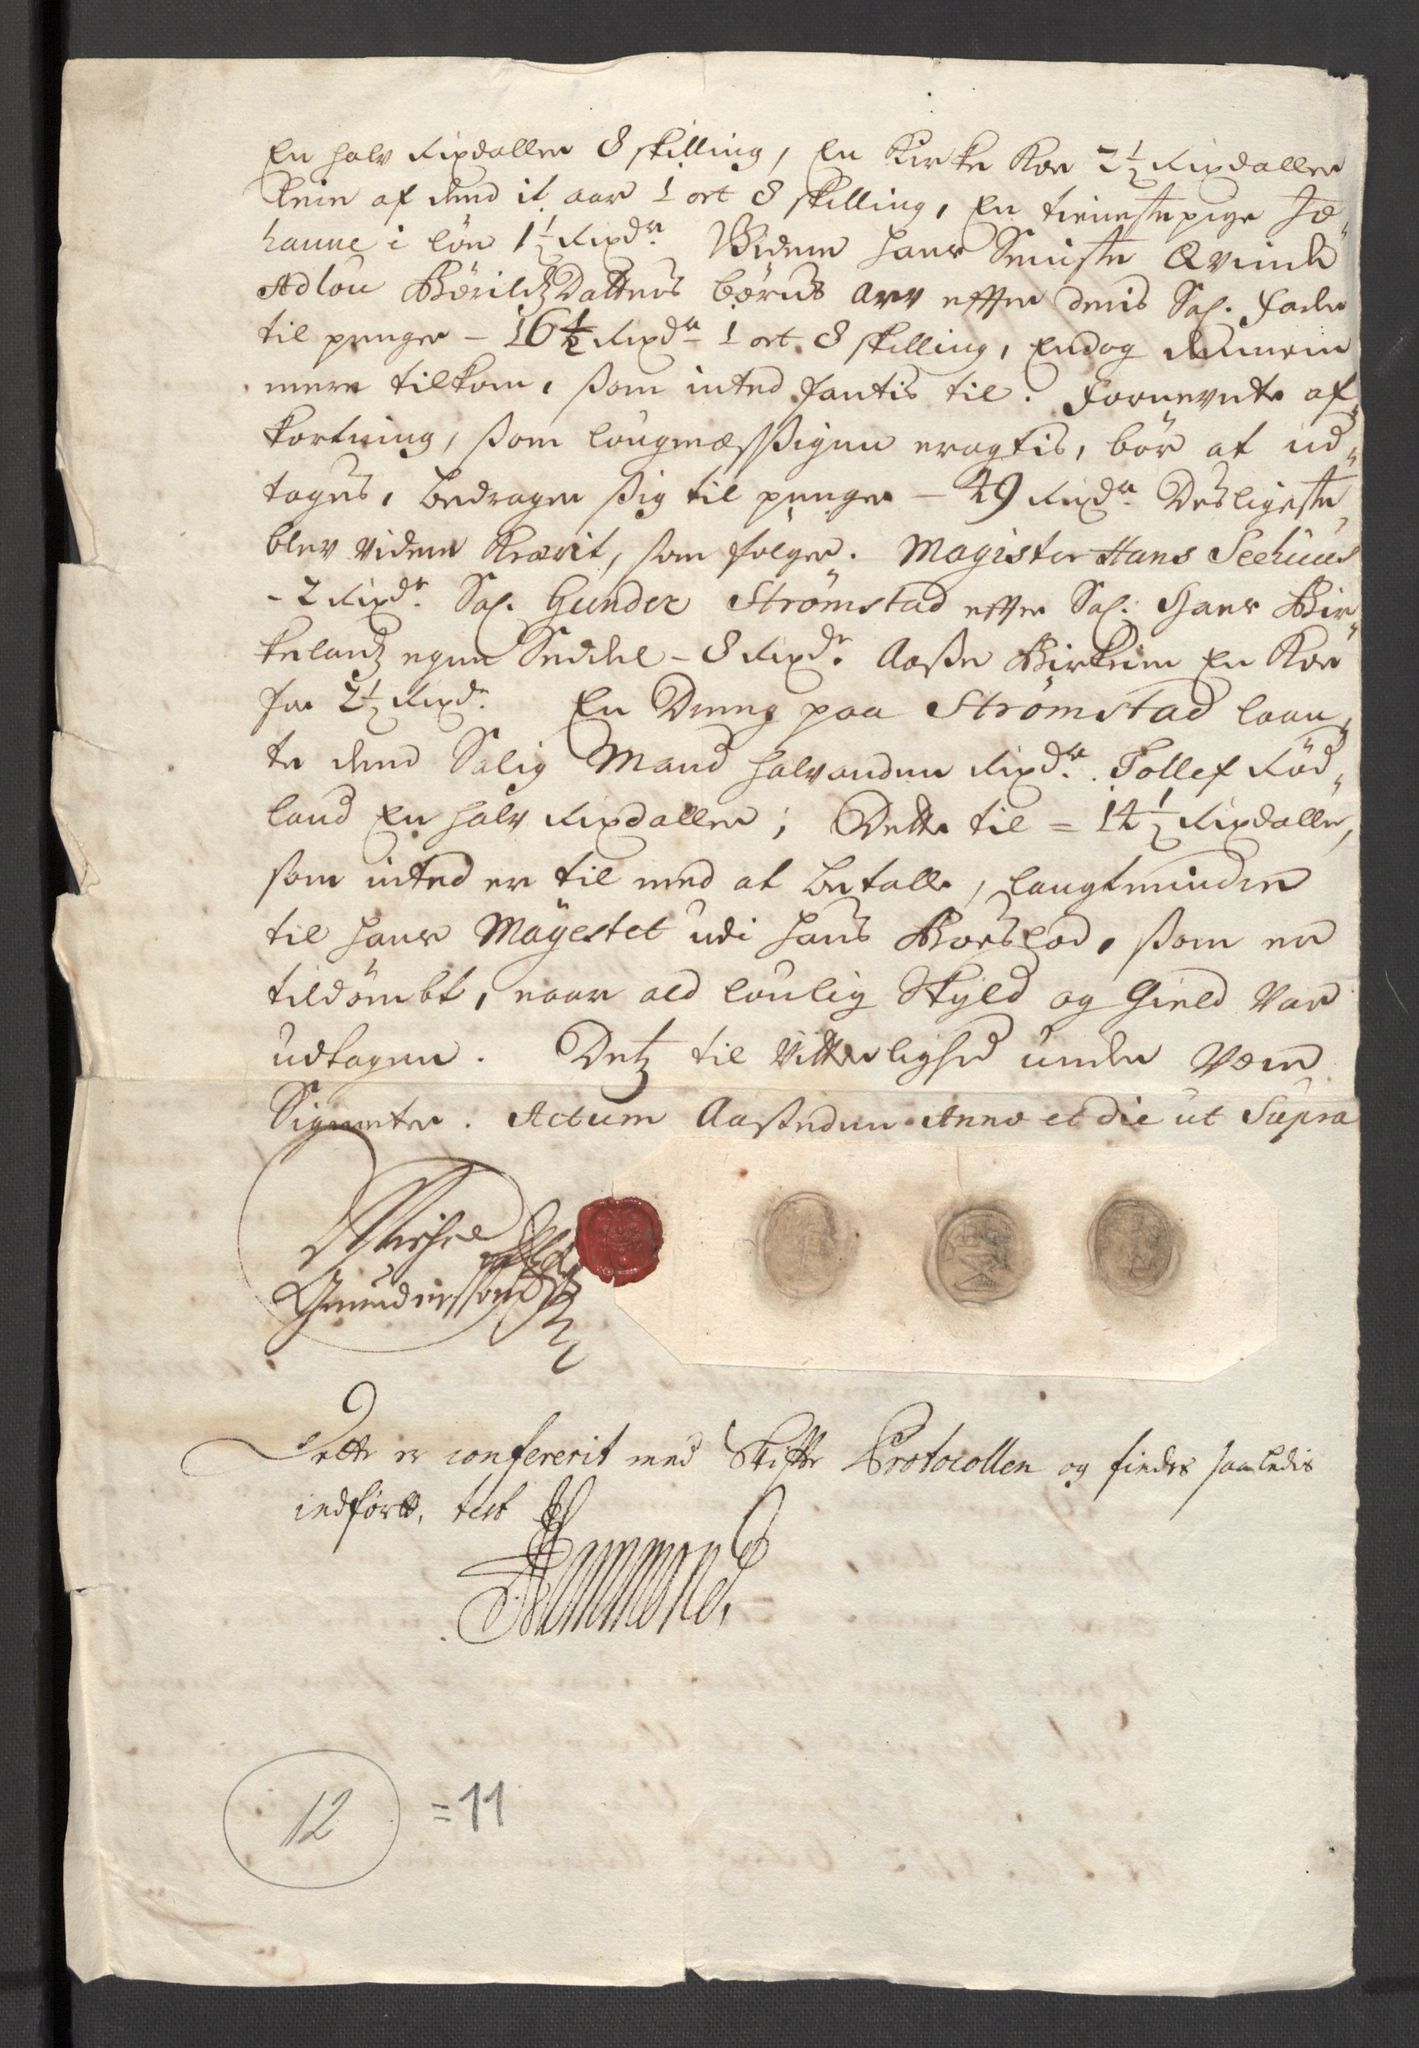 En halv Rixdaller 8 skilling, En Kirke Koe 2½ Rixdaller
Leie af dend it aar 1 ort 8 skilling, En tienestepige Jo-
hanne i løn 1½ Rixdr. Widere hans Seniste Qvinde
Adlou Børildz Datters børns Arv effter deris Sal. Fader
til penger - 16½ Rixdr 1 ort 8 skilling, Endog
mere tilkom, som inted fantis til. Fornevnte af-
kortning, som lougmæssigen eragtis, bør at ud-
tages, bedrager sig til penger - 49 Rixdr. Desligeste
blev videre Krævit, som følger. Magister Hans Seehuus
- 2 Rixdr. Sal. Gunder Strømstad effter Sal. Hans Bir-
kelandz egen Seddel - 8 Rixdr. Aasse Birkrem En Koe
for 2½ Rixdr. En Dreng paa Strømstad laan-
te dend Salig Mand halvanden Rixdr. Tollef Rød-
land En halv Rixdaller; Dette til = 14½ Rixdaller,
som inted er til med at betalle, langtminder
til hans Mayestet udi hans Boeslod, som er
tildømbt, naar ald loulig Skyld og Gield var
udtagen. Detz til Vitterlighed under voris
Signeter. Actum Aastedun Anno et die ut Supra
Michel
Gunderssøn
Dette er confererit med Skifte Protocollen og findes saaledis
indført, test
Hammond.
12 = 11